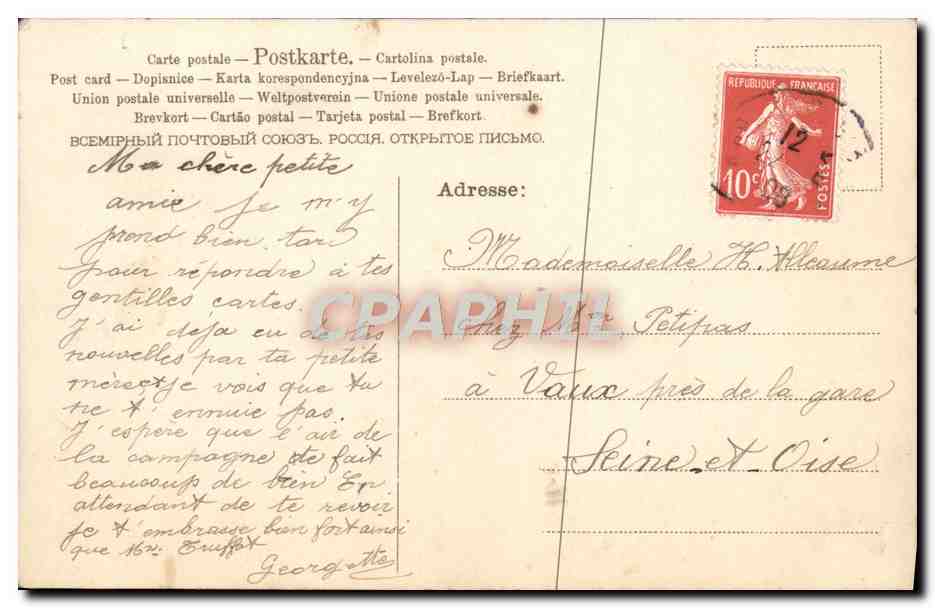 Carte postale — Postkarte. — Cartolina postale.
Post card — Dopisnice — Karta korespondencyjna — Levelező-Lap — Briefkaart.
Union postale universelle — Weltpostverein — Unione postale universale.
Brevkort — Cartão postal — Tarjeta postal — Brefkort.
ВСЕМІРНЫЙ ПОЧТОВЫЙ СОЮЗЪ. РОССІЯ. ОТКРЫТОЕ ПИСЬМО.
Ma chère petite
amie je m'y
prend bien tar
pour répondre à tes
gentilles cartes.
J'ai déja eu de tes
nouvelles par ta petite
mère et je vois que tu
ne t'ennuie pas.
J'espère que l'air de
la campagne te fait
beaucoup de bien En
attendant de te revoir
je t'embrasse bien fort ainsi
que Mme Truffat
Georgette
Adresse:
Mademoiselle H. Alleaume
chez Mme Petipas
à Vaux près de la gare
Seine-et-Oise
REPUBLIQUE FRANÇAISE
10c
POSTES
12
09
CPAPHIL